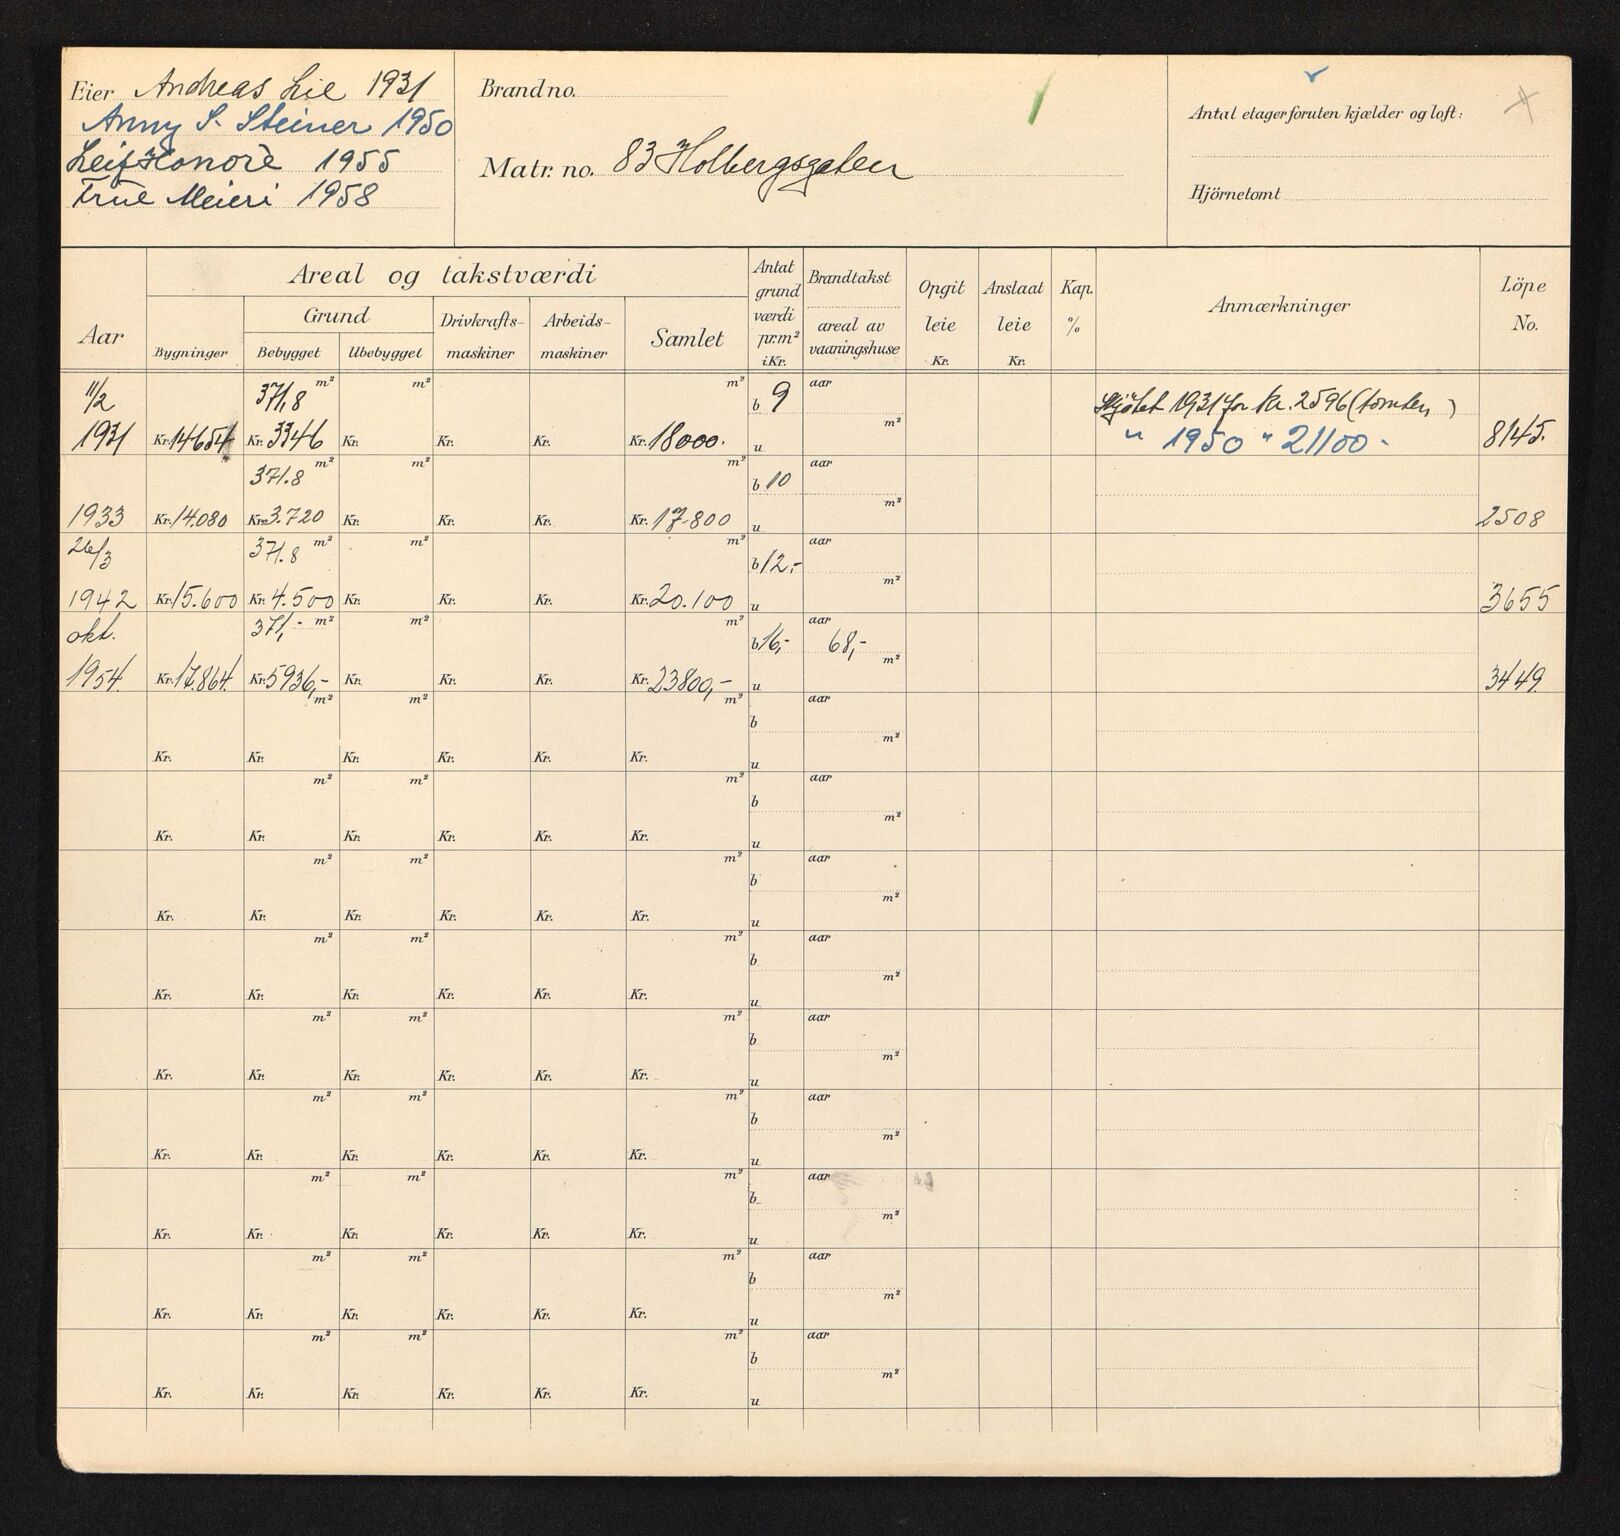 Eier Andreas Lie 1931
Anny S. Steiner 1950
Leif Honorè 1955
True Meieri 1958
Brand no.
Matr. no. 83 Holbergsgaten
Antal etager foruten kjælder og loft:
Hjörnetomt
Aar
Areal og takstværdi
Bygninger
Grund
Bebygget
Ubebygget
Drivkrafts-
maskiner
Arbeids-
maskiner
Samlet
Antat
grund
værdi
pr. m²
i Kr.
Brandtakst
areal av
vaaningshuse
Opgit
leie
Kr.
Anslaat
leie
Kr.
Kap.
%
Anmærkninger
Löpe
No.
11/2 371,8 m² m² m² b 9 aar Skjøtet 1931 for kr. 2596 (tomten)
1931 Kr. 14654 Kr. 3346 Kr. Kr. Kr. Kr. 18000. u m² " 1950 " 21100 - 8145.
371.8 m² m² m² b 10 aar
1933 Kr. 14.080 Kr. 3.720 Kr. Kr. Kr. Kr. 17.800 u m² 2508
26/3 371.8 m² m² m² b 12,- aar
1942 Kr. 15.600 Kr. 4.500 Kr. Kr. Kr. Kr. 20.100 u m² 3655
okt. 371,- m² m² m² b 16,- aar 68,-
1954. Kr. 17.864. Kr. 5936,- Kr. Kr. Kr. Kr. 23800,- u m² 3449.
m² m² m² b aar
Kr. Kr. Kr. Kr. Kr. Kr. u m²
m² m² m² b aar
Kr. Kr. Kr. Kr. Kr. Kr. u m²
m² m² m² b aar
Kr. Kr. Kr. Kr. Kr. Kr. u m²
m² m² m² b aar
Kr. Kr. Kr. Kr. Kr. Kr. u m²
m² m² m² b aar
Kr. Kr. Kr. Kr. Kr. Kr. u m²
m² m² m² b aar
Kr. Kr. Kr. Kr. Kr. Kr. u m²
m² m² m² b aar
Kr. Kr. Kr. Kr. Kr. Kr. u m²
m² m² m² b aar
Kr. Kr. Kr. Kr. Kr. Kr. u m²
m² m² m² b aar
Kr. Kr. Kr. Kr. Kr. Kr. u m²